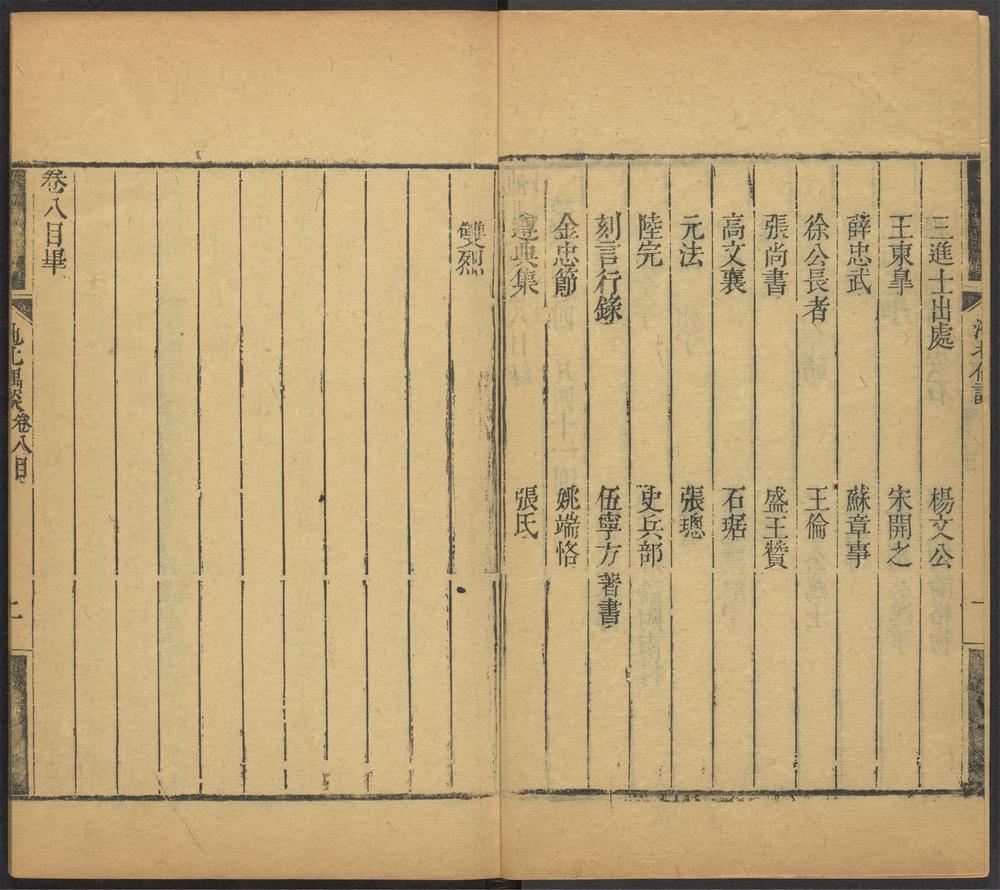 三進士出處 楊文公
王東皐 宋開之
薛忠武 蘇章事
徐公長者 王倫
張尚書 盛王贊
高文襄 石琚
元法 張璁
陸完 史兵部
刻言行錄 伍寧方著書
金忠節 姚端恪
遵典集 張氏
雙烈
卷八目畢
池北偶談 卷八目 二